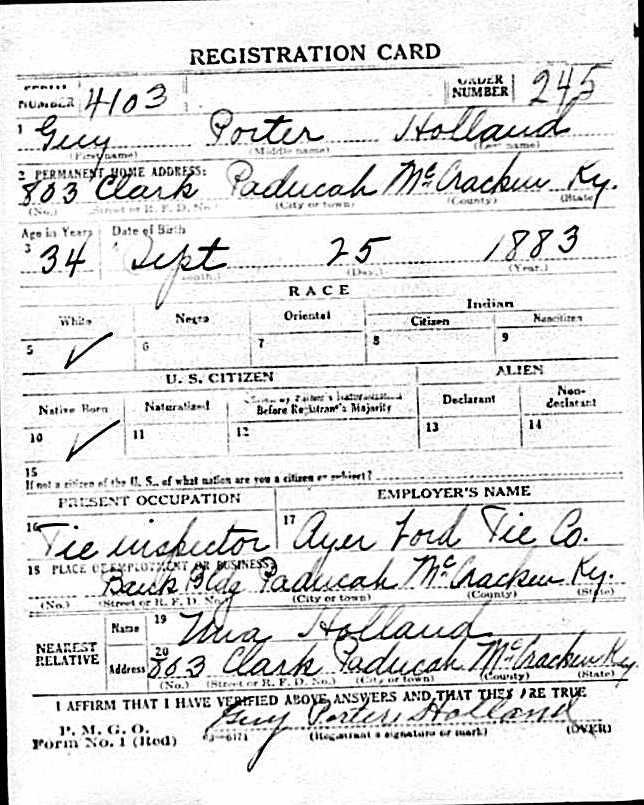 REGISTRATION CARD
SERIAL NUMBER 4103 ORDER NUMBER 245
1 Guy Porter Holland
(First name) (Middle name) (Last name)
2 PERMANENT HOME ADDRESS:
803 Clark Paducah McCracken Ky.
(No.) (Street or R. F. D. No.) (City or town) (County) (State)
Age in Years Date of Birth
3 34 4 Sept 25 1883
(Month.) (Day.) (Year.)
RACE
White Negro Oriental Indian
Citizen Noncitizen
5 ✓ 6 7 8 9
U. S. CITIZEN ALIEN
Native Born Naturalized Citizen by Father's Naturalization Before Registrant's Majority Declarant Non-declarant
10 ✓ 11 12 13 14
15
If not a citizen of the U. S., of what nation are you a citizen or subject?
PRESENT OCCUPATION EMPLOYER'S NAME
16 Tie inspector 17 Ayer Lord Tie Co.
18 PLACE OF EMPLOYMENT OR BUSINESS:
Bank Bldg Paducah McCracken Ky.
(No.) (Street or R. F. D. No.) (City or town) (County) (State)
NEAREST RELATIVE Name 19 Holland
Address 20 803 Clark Paducah McCracken Ky.
(No.) (Street or R. F. D. No.) (City or town) (County) (State)
I AFFIRM THAT I HAVE VERIFIED ABOVE ANSWERS AND THAT THEY ARE TRUE
P. M. G. O.
Form No. 1 (Red) 03-6171 Guy Porter Holland
(Registrant's signature or mark) (OVER)